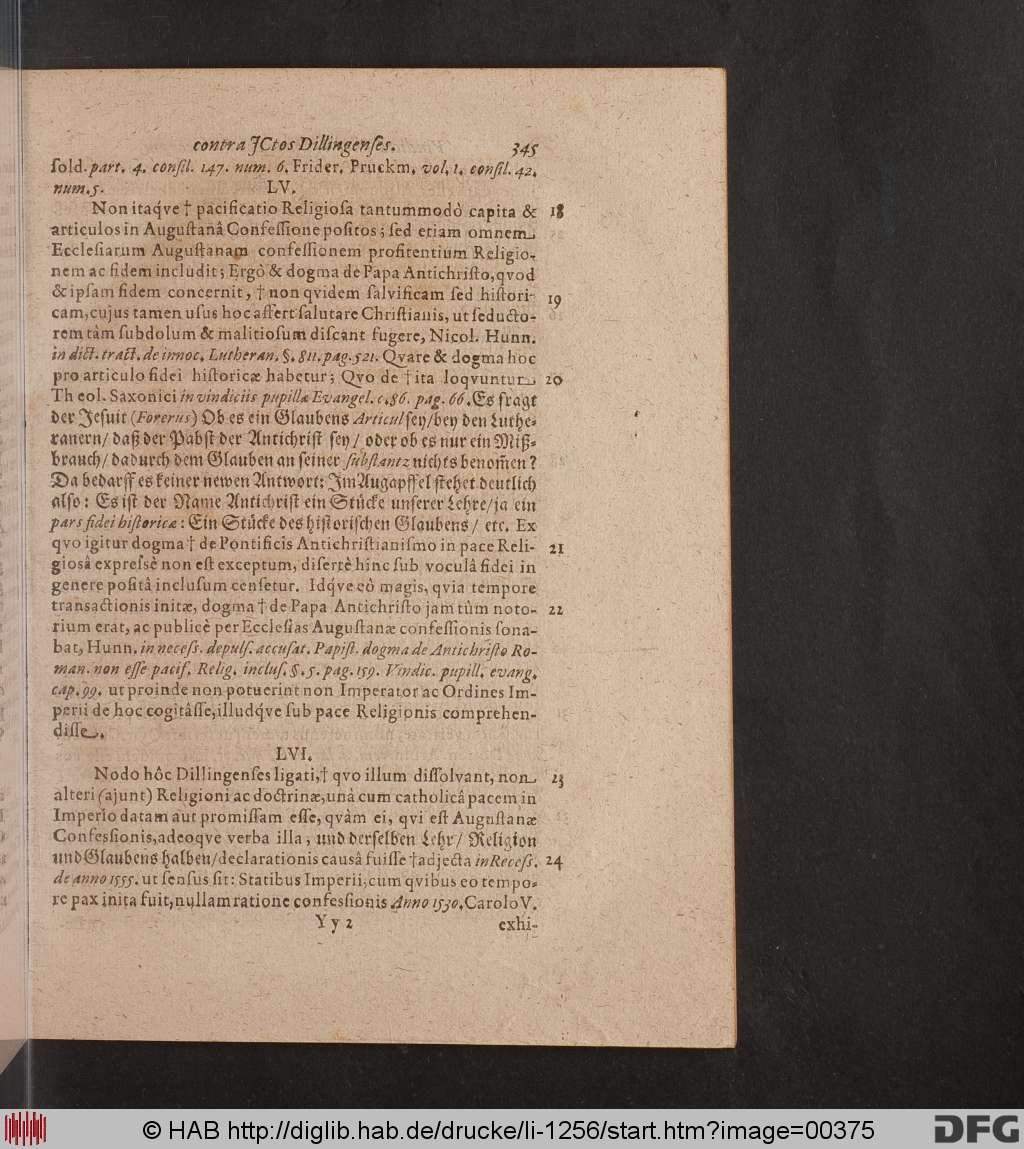 contra JCtos Dillingenses. 345
ſold. part. 4. conſil. 147. num. 6. Frider. Pruckm. vol. 1. conſil. 42.
num. 5. LV.
Non itaq́ve † pacificatio Religioſa tantummodò capita & 18
articulos in Auguſtanâ Confeſſione poſitos; ſed etiam omnem
Eccleſiarum Auguſtanam confeſſionem profitentium Religio-
nem ac fidem includit; Ergò & dogma de Papa Antichriſto, qvod
& ipſam fidem concernit, † non qvidem ſalvificam ſed hiſtori- 19
cam, cujus tamen uſus hoc affert ſalutare Chriſtianis, ut ſeducto-
rem tàm ſubdolum & malitioſum diſcant fugere, Nicol. Hunn.
in dict. tract. de innoc. Lutheran. §. 811. pag. 521. Qvare & dogma hoc
pro articulo fidei hiſtoricæ habetur; Qvo de † ita loqvuntur 20
Theol. Saxonici in vindiciis pupillæ Evangel. c. 86. pag. 66. Es fragt
der Jeſuit (Forerus) Ob es ein Glaubens Articul ſey/ bey den Luthe-
ranern/ daß der Pabſt der Antichriſt ſey/ oder ob es nur ein Miß-
brauch/ dadurch dem Glauben an ſeiner ſubſtantz nichts benom̃en?
Da bedarff es keiner newen Antwort: Im Augapffel ſtehet deutlich
alſo: Es iſt der Name Antichriſt ein Stücke unſerer Lehre/ ja ein
pars fidei hiſtoricæ: Ein Stücke des hiſtoriſchen Glaubens/ etc. Ex
qvo igitur dogma † de Pontificis Antichriſtianiſmo in pace Reli- 21
gioſâ expreſsè non eſt exceptum, diſertè hinc ſub voculâ fidei in
genere poſitâ incluſum cenſetur. Idq́ve eò magis, qvia tempore
transactionis initæ, dogma † de Papa Antichriſto jam tùm noto- 22
rium erat, ac publicè per Eccleſias Auguſtanæ confeſſionis ſona-
bat, Hunn. in neceſſ. depulſ. accuſat. Papiſt. dogma de Antichriſto Ro-
man. non eſſe pacif. Relig. incluſ. §. 5. pag. 159. Vindic. pupill. evang.
cap. 99. ut proinde non potuerint non Imperator ac Ordines Im-
perii de hoc cogitâſſe, illudq́ve ſub pace Religionis comprehen-
diſſe.
LVI.
Nodo hôc Dillingenſes ligati, † qvo illum diſſolvant, non 23
alteri (ajunt) Religioni ac doctrinæ, unà cum catholicâ pacem in
Imperio datam aut promiſſam eſſe, qvàm ei, qvi eſt Auguſtanæ
Confeſſionis, adeoqve verba illa, und derſelben Lehr/ Religion
und Glaubens halben/ declarationis causâ fuiſſe † adjecta in Receſſ. 24
de anno 1555. ut ſenſus ſit: Statibus Imperii, cum qvibus eo tempo-
re pax inita fuit, nullam ratione confeſſionis Anno 1530. Carolo V.
Y y 2 exhi-
© HAB http://diglib.hab.de/drucke/li-1256/start.htm?image=00375 DFG